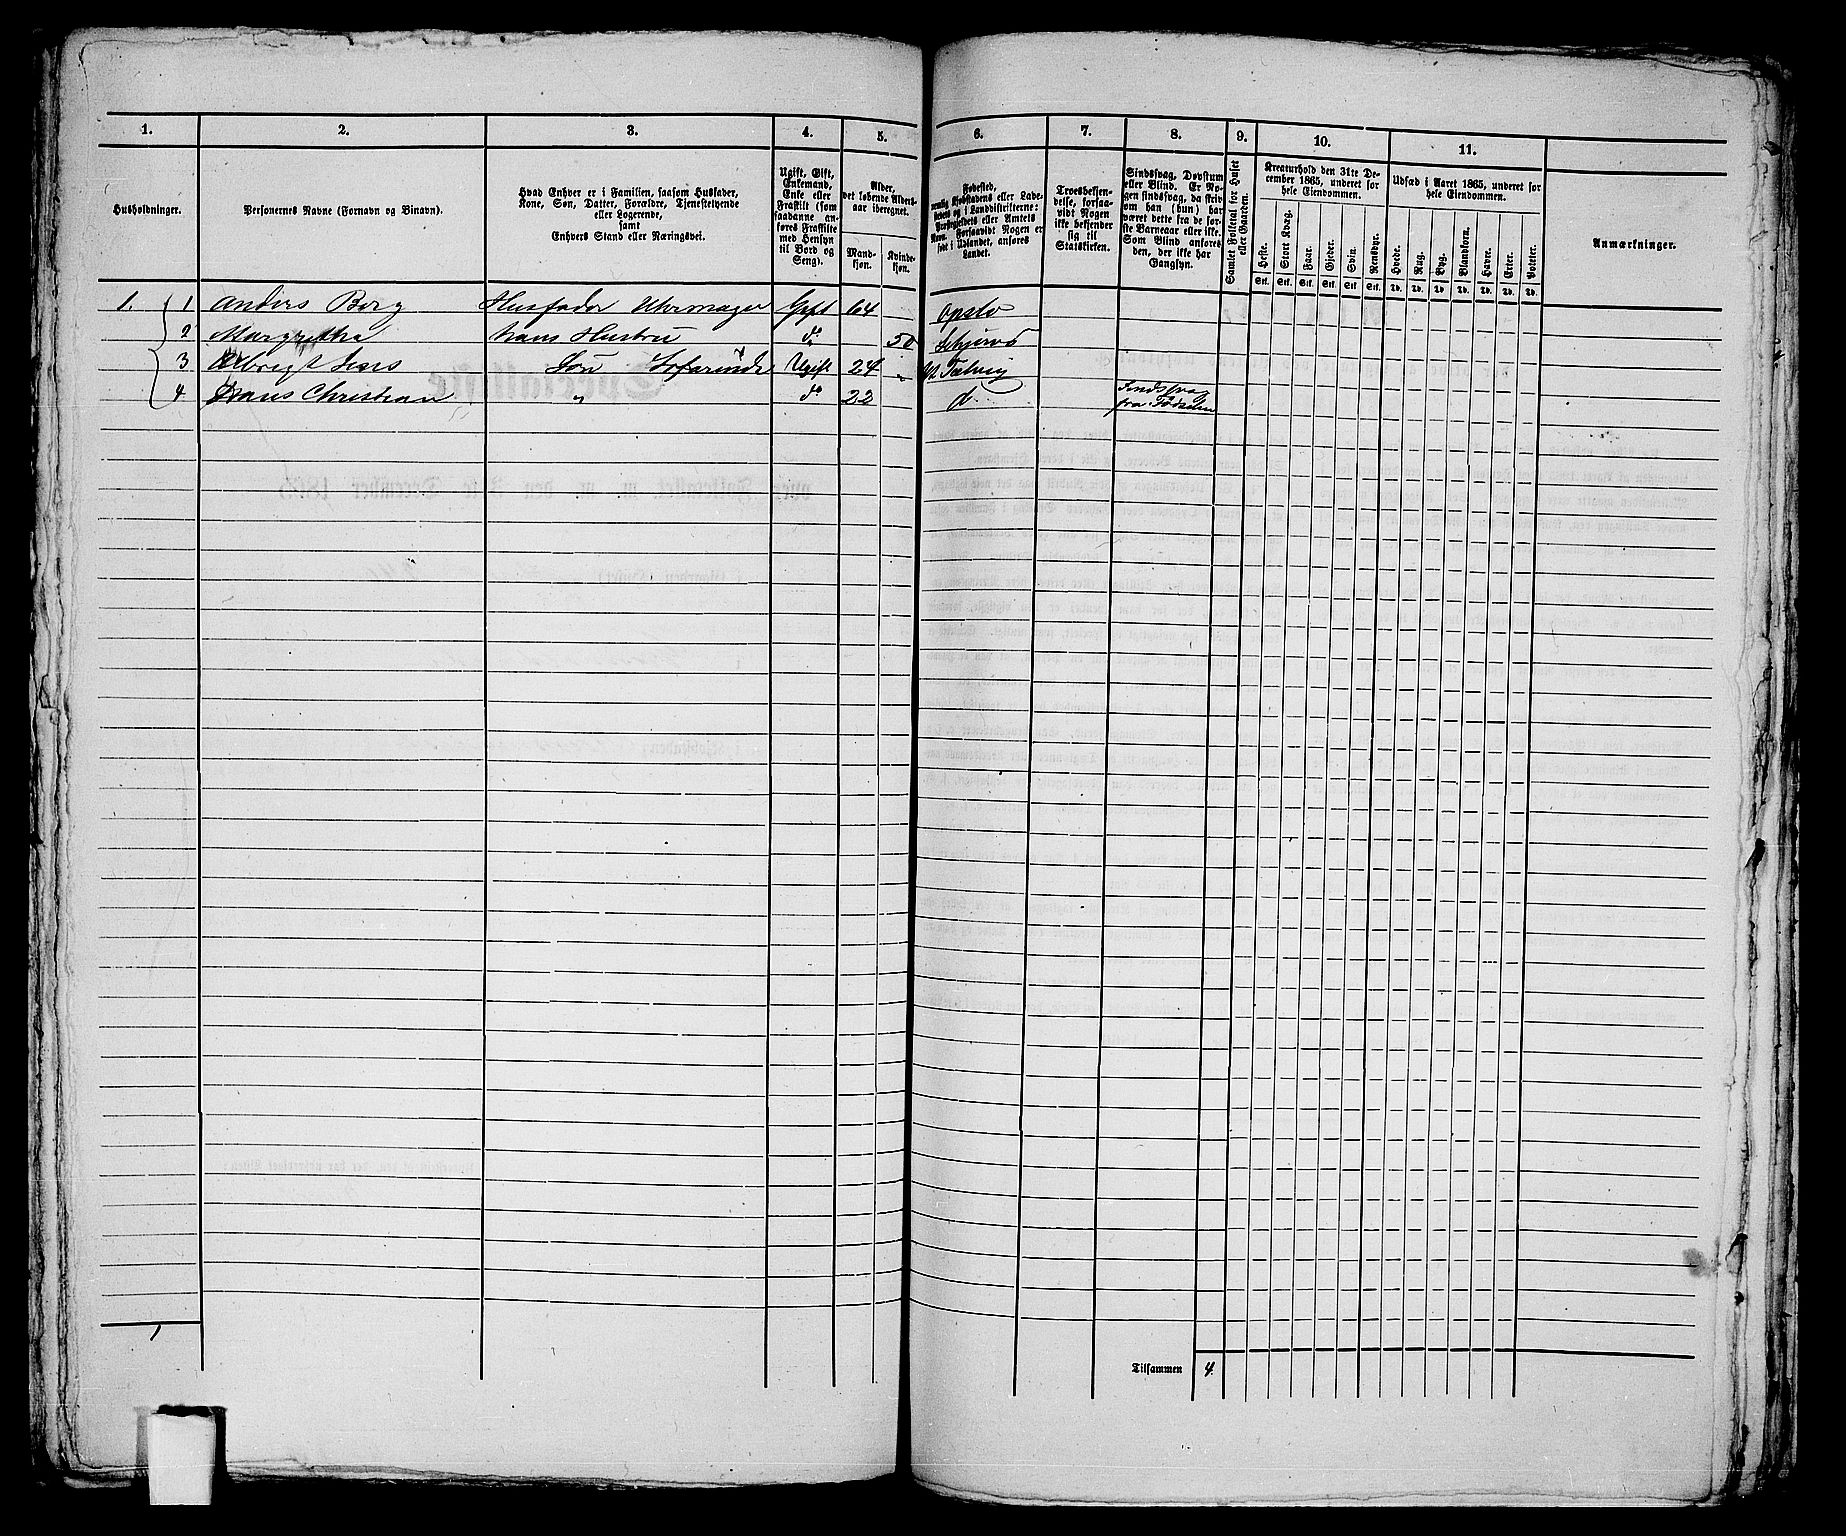 1. 2. 3. 4. 5. 6. 7. 8. 9. 10. 11.
Husholdninger.
Personernes Navne (Fornavn og Binavn).
Hvad Enhver er i Familien, saasom Husfader,
Kone, Søn, Datter, Forældre, Tjenestetyende
eller Logerende,
samt
Enhvers Stand eller Næringsvei.
Ugift, Gift,
Enkemand,
Enke eller
Fraskilt (som
saadanne an-
føres Fraskilte
med Hensyn
til Bord og
Seng).
Alder,
det løbende Alders-
aar iberegnet.
Mand-
kjøn.
Kvinde-
kjøn.
Fødested,
Kjøbstadens eller Lade-
stedets og i Landdistrikterne:
Præstegjeldets eller Amtets
Navn. Forsaavidt Nogen er
født i Udlandet, anføres
Landet.
Troesbekjen-
delse, forsaa-
vidt Nogen
ikke bekjender
sig til
Statskirken.
Sindssvag, Døvstum
eller Blind. Er No-
gen sindssvag, da skriv
om han (hun) har
været dette fra de før-
ste Barneaar eller ikke.
Som Blind anføres
den, der ikke har
Gangsyn.
Samlet Folketal for Huset
eller Gaarden.
Kreaturhold den 31te De-
cember 1865, underet for
hele Eiendommen.
Heste.
Stort Kvæg.
Faar.
Gjeder.
Svin.
Rensdyr.
Stk. Stk. Stk. Stk. Stk. Stk.
Udsæd i Aaret 1865, underet for
hele Eiendommen.
Hvede.
Rug.
Byg.
Blandkorn.
Havre.
Erter.
Poteter.
Td. Td. Td. Td. Td. Td. Td.
Anmærkninger.
1. 1 Anders Berg Husfader Uhrmager Gift 64 Opslo
2 Margretha hans Hustru do 50 Skjervø
3 Albrigt Jens Søn Ugift 24 Talvig
4 Hans Christian " do 22 do Sindssvag
fra Fødselen
1
Tilsammen 4